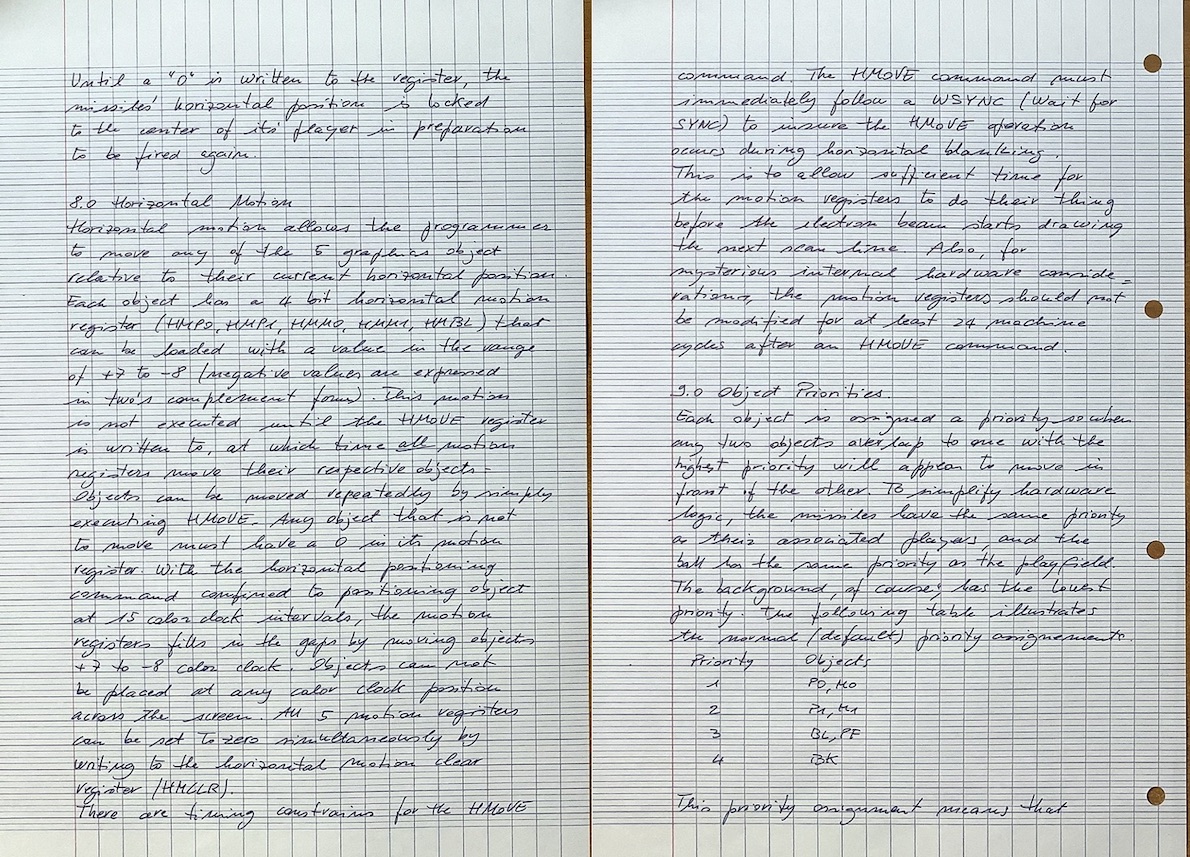 Until a "0" is written to the register, the
missiles' horizontal position is locked
to the center of its' player in preparation
to be fired again.
8.0 Horizontal Motion
Horizontal motion allows the programmer
to move any of the 5 graphics object
relative to their current horizontal position.
Each object has a 4 bit horizontal motion
register (HMP0, HMP1, HMM0, HMM1, HMBL) that
can be loaded with a value in the range
of +7 to -8 (negative values are expressed
in two's complement form). This motion
is not executed until the HMOVE register
is written to, at which time all motion
registers move their respective objects-
Objects can be moved repeatedly by simply
executing HMOVE. Any object that is not
to move must have a 0 in its motion
register. With the horizontal positioning
command confined to positioning object
at 15 color clock intervals, the motion
registers fills in the gaps by moving objects
+7 to -8 color clock. Objects can not
be placed at any color clock position
across the screen. All 5 motion registers
can be set to zero simultaneously by
writing to the horizontal motion clear
register (HMCLR).
There are timing constrains for the HMOVE
command. The HMOVE command must
immediately follow a WSYNC (Wait for
SYNC) to insure the HMOVE operation
occurs during horizontal blanking.
This is to allow sufficient time for
the motion registers to do their thing
before the electron beam starts drawing
the next scan line. Also, for
mysterious internal hardware conside=
rations, the motion registers should not
be modified for at least 24 machine
cycles after an HMOVE command.
9.0 Object Priorities.
Each object is assigned a priority so when
any two objects overlap to one with the
highest priority will appear to move in
front of the other. To simplify hardware
logic, the missiles have the same priority
as their associated players, and the
ball has the same priority as the playfield.
The background, of course, has the lowest
priority. The following table illustrates
the normal (default) priority assignements.
Priority Objects
1 P0, M0
2 P1, M1
3 BL, PF
4 BK
This priority assignment means that